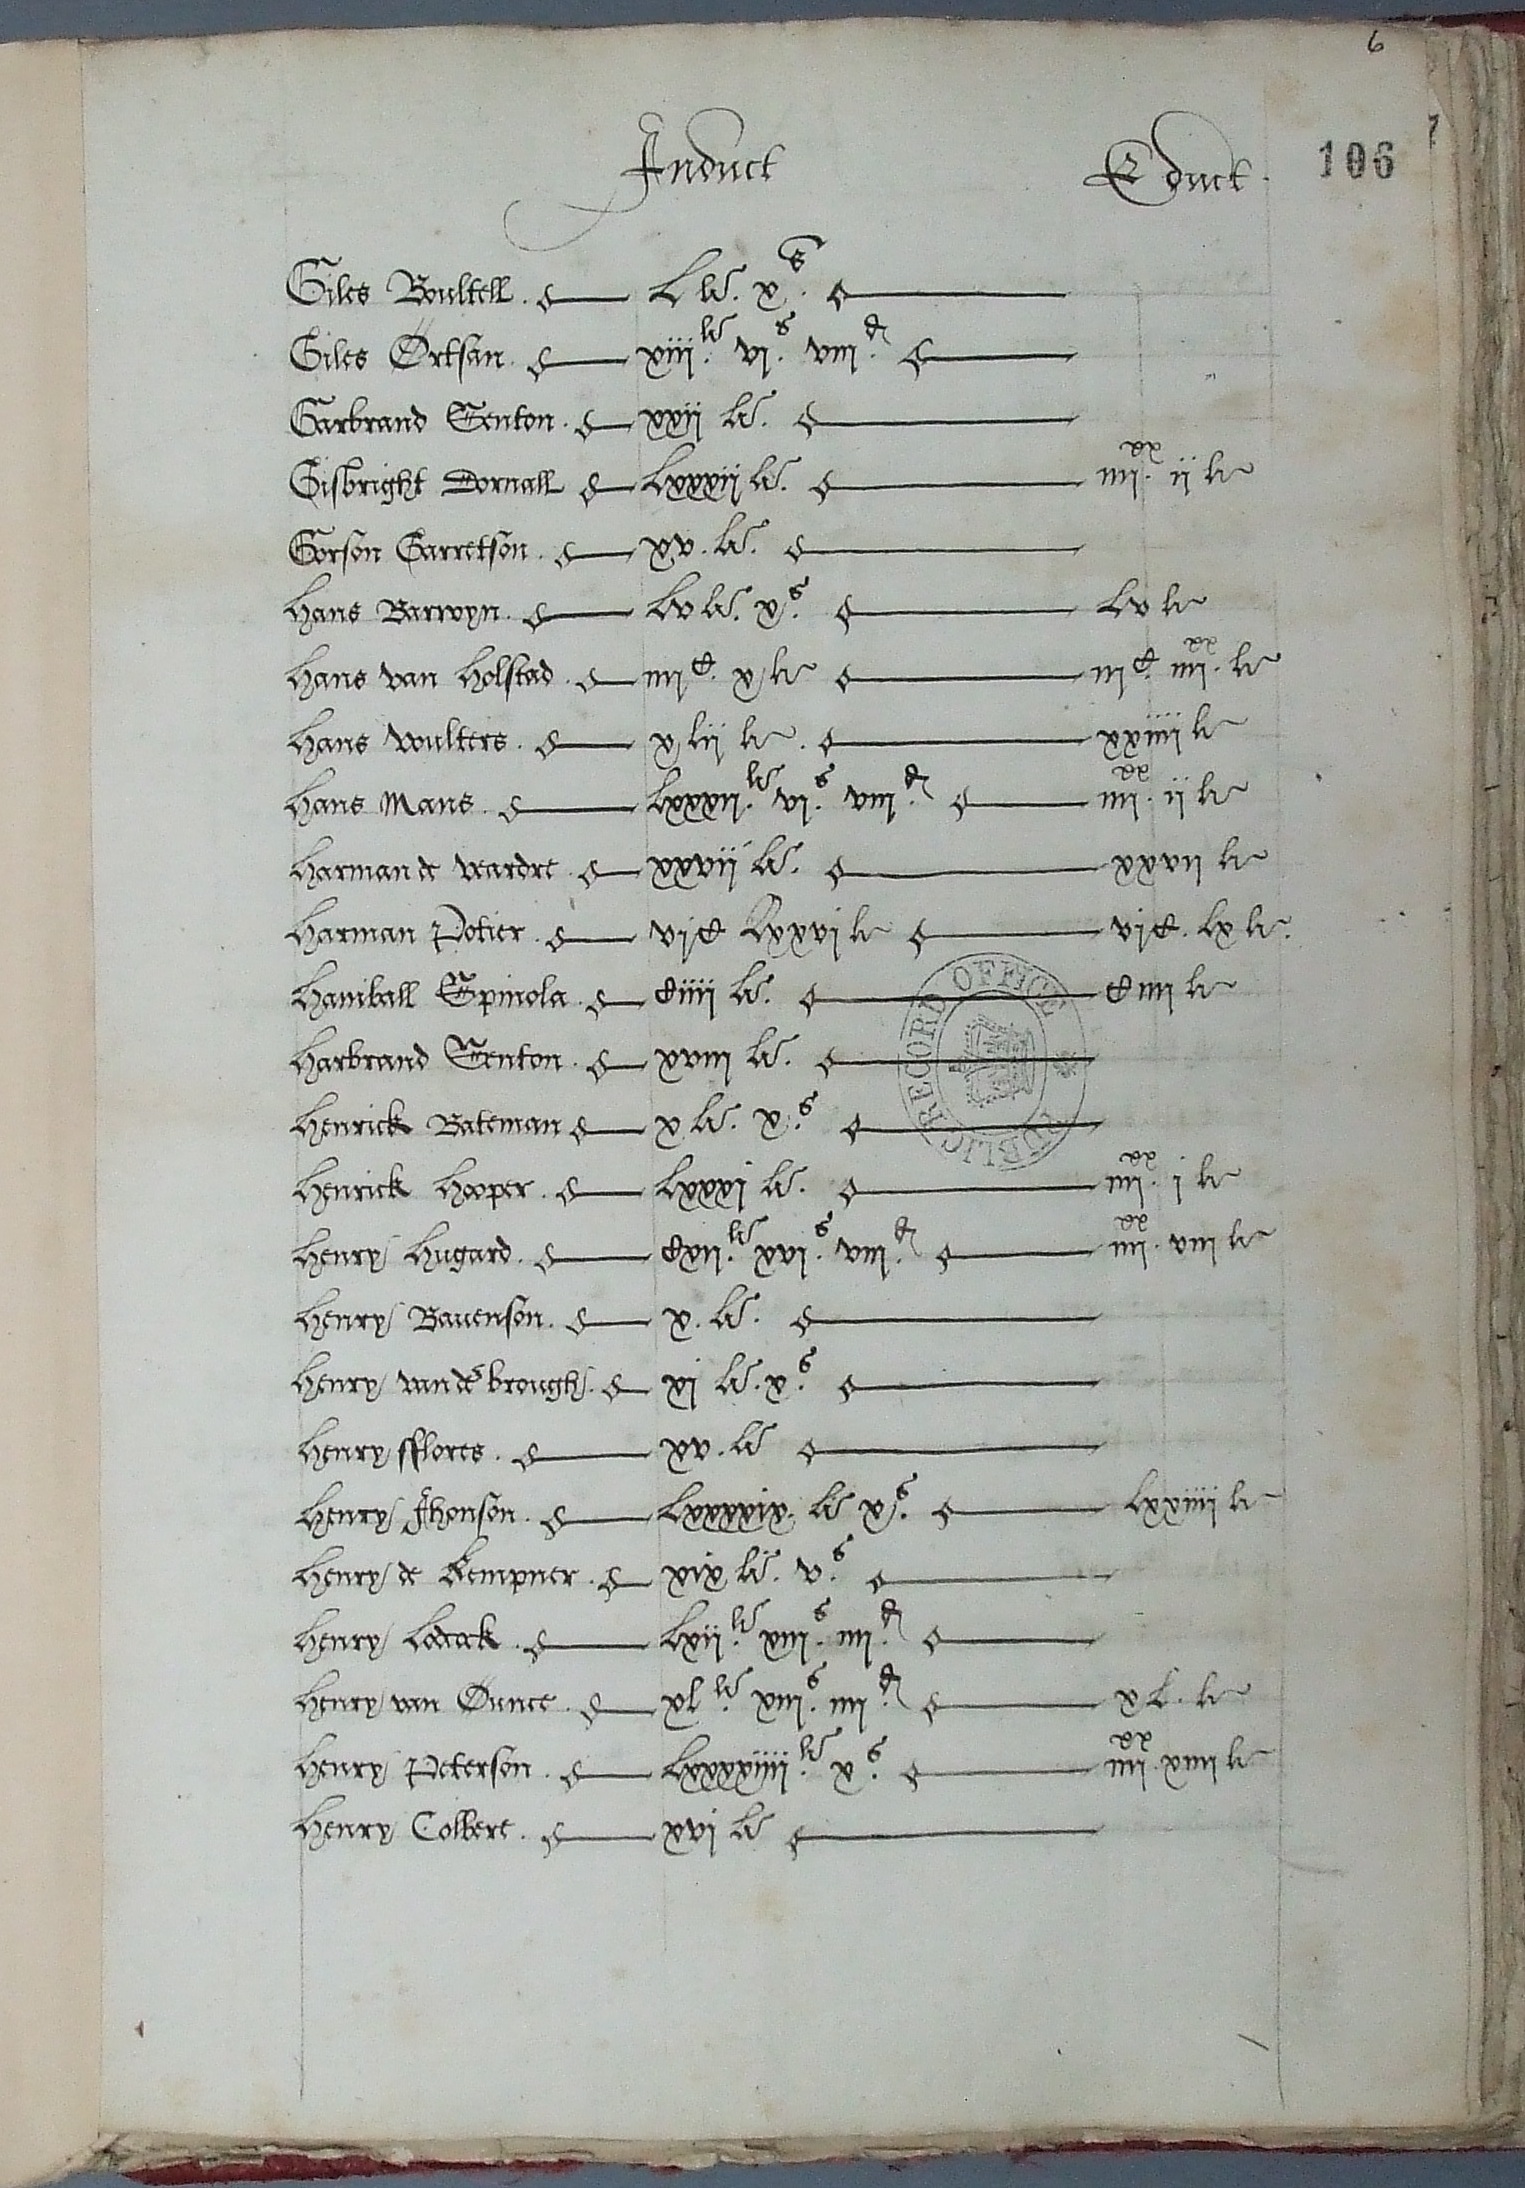 6
106
Induct Educt
Giles Boultell. L li. x s.
Giles Ortsan. xiij li. vj s. viij d.
Garbrand Senton. xxij li.
Gisbright Dornall lxxxij li. iiij xx. ij li
Gorson Garretson. xv. li.
Hans Barwyn. Lv li. x s. Lv li
Hans van Holstad. iiij C. x li iij C. iiij xx. li
Hans Wulters. xlij li. xxiiij li
Hans Mans. lxxxij. li vj. s viij. d iiij xx. ij li
Harman de Weardre. xxvij li. xxvij li
Harman Potier. vj C Lxxvj li vj C. lx li.
Haniball Spinola. Ciiij li. Ciiij li
Harbrand Senton. xviij li.
Henrick Bateman x li. x. s
Henrick Hooper. lxxxj li. iiij xx. j li
Henry Hugard. Cxij. li xvj. s viij. d iiij xx. viij li
Henry Bauenson. x. li.
Henry vande brough. xj li. x. s
Henry fflores. xv. li
Henry Jhonson. Lxxxxix. li x. s lxxiiij li
Henry de Kempner. xix li. v. s
Henry lxij. li xiij. s iiij. d
Henry van Ounce. xl li. xiij. s iiij. d xL. li
Henry Peterson. Lxxxxiiij. li x. s iiij xx. xiiij li
Henry Colbert. xvj li
PUBLIC RECORD OFFICE